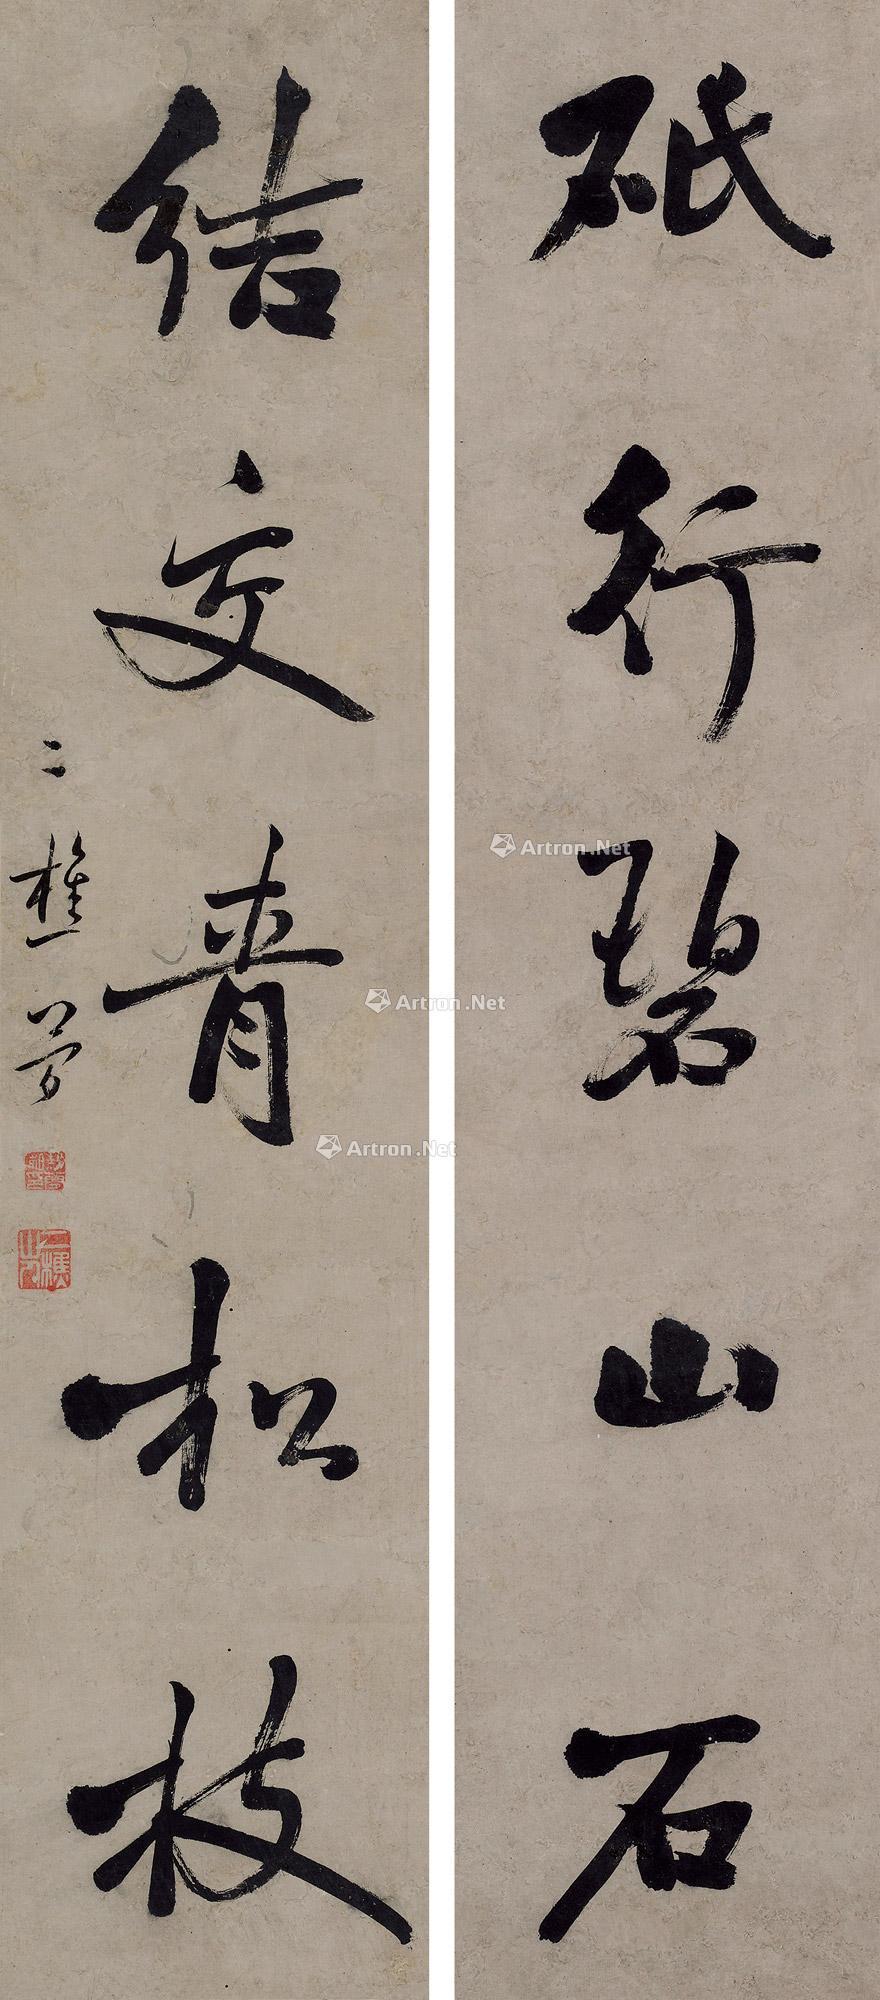 砥行碧山石
结交青松枝
二樵
Artron.Net
Artron.Net
Artron.Net